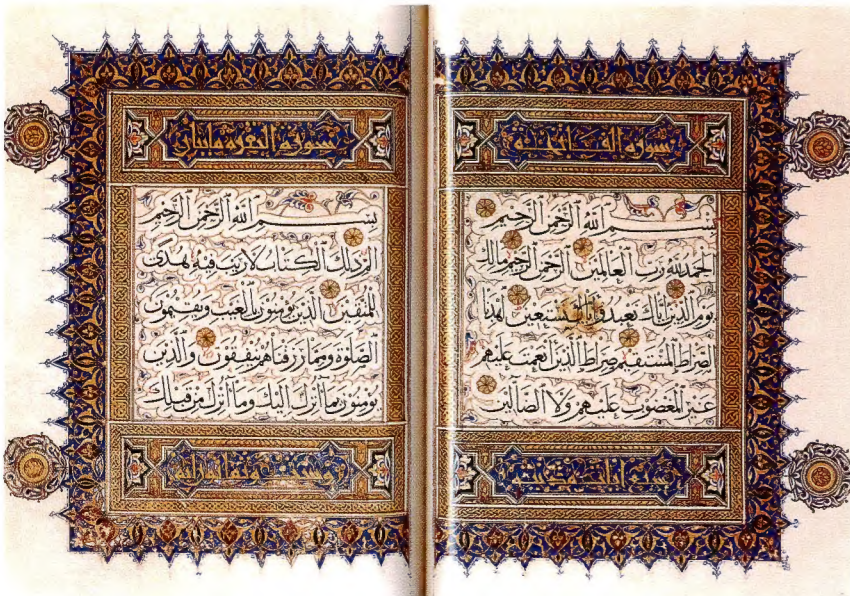 سورة الفاتحة
بسم الله الرحمن الرحيم
الحمد لله رب العالمين الرحمن الرحيم مالك
يوم الدين اياك نعبد واياك نستعين اهدنا
الصراط المستقيم صراط الذين انعمت عليهم
غير المغضوب عليهم ولا الضالين
سورة البقرة مايتان
بسم الله الرحمن الرحيم
الم ذلك الكتاب لا ريب فيه هدى
للمتقين الذين يومنون بالغيب ويقيمون
الصلوة ومما رزقناهم ينفقون والذين
يومنون بما انزل اليك وما انزل من قبلك